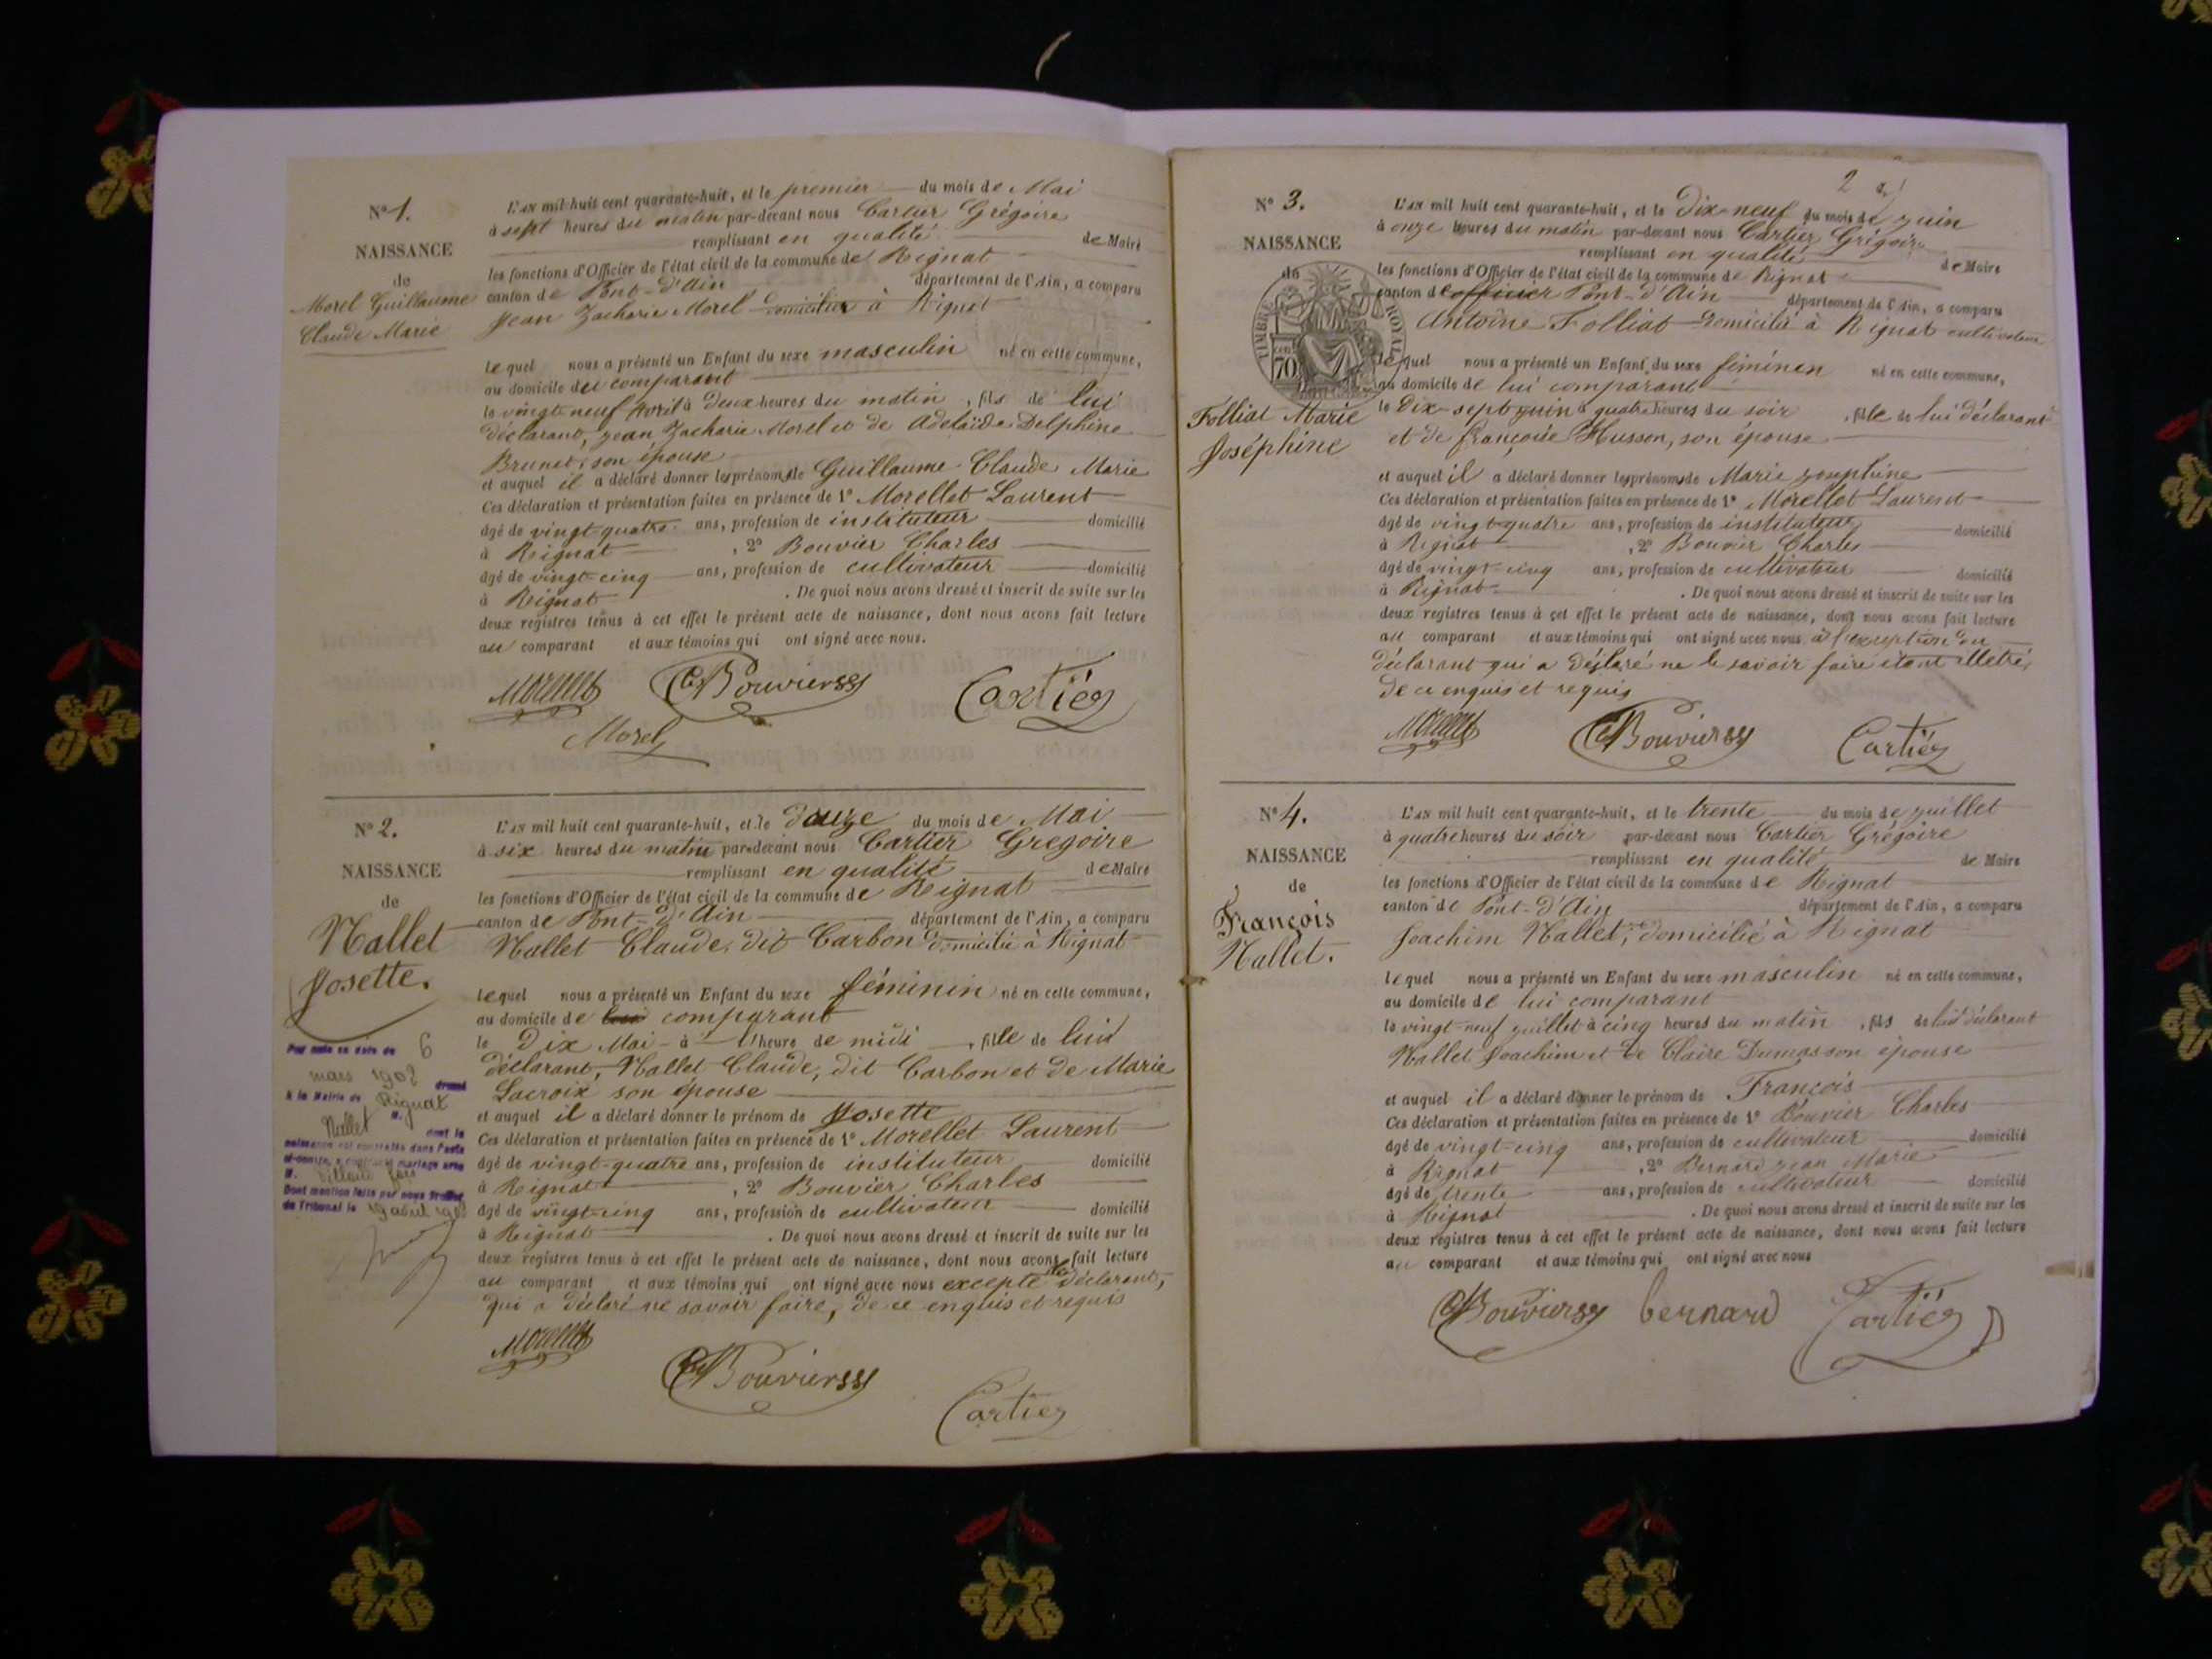 N° 1.
NAISSANCE
de
Morel Guillaume
Claude Marie
L'AN mil huit cent quarante-huit, et le premier du mois de Mai
à sept heures du matin par-devant nous Cartier Grégoire
remplissant en qualité de Maire
les fonctions d'Officier de l'état civil de la commune de Rignat
canton de Pont-d'Ain département de l'Ain, a comparu
Jean Zacharie Morel domicilié à Rignat
lequel nous a présenté un Enfant du sexe masculin né en cette commune,
au domicile du comparant
le vingt-neuf Avril à deux heures du matin, fils de lui
déclarant, Jean Zacharie Morel et de Adelaïde Delphine
Brunet, son épouse
et auquel il a déclaré donner les prénoms de Guillaume Claude Marie
Ces déclaration et présentation faites en présence de 1° Morellet Laurent
âgé de vingt-quatre ans, profession de instituteur domicilié
à Rignat, 2° Bouvier Charles
âgé de vingt-cinq ans, profession de cultivateur domicilié
à Rignat. De quoi nous avons dressé et inscrit de suite sur les
deux registres tenus à cet effet le présent acte de naissance, dont nous avons fait lecture
au comparant et aux témoins qui ont signé avec nous.
Bouvier Cartier
Morel
N° 2.
NAISSANCE
de
Nallet
Josette.
Par acte en date du 6
mars 190
à la Mairie de Rignat
Nallet M. dont la
naissance est constatée dans l'acte
ci-contre, a contracté mariage avec
M.
Dont mention faite par nous Greffier
du Tribunal le 19 avril
L'AN mil huit cent quarante-huit, et le douze du mois de Mai
à six heures du matin par-devant nous Cartier Gregoire
remplissant en qualité de Maire
les fonctions d'Officier de l'état civil de la commune de Rignat
canton de Pont-d'Ain département de l'Ain, a comparu
Nallet Claude, dit Carbon domicilié à Rignat
lequel nous a présenté un Enfant du sexe féminin né en cette commune,
au domicile de comparant
le Dix Mai à l'heure de midi, fille de lui
déclarant, Nallet Claude, dit Carbon et de Marie
Lacroix son épouse
et auquel il a déclaré donner le prénom de Josette
Ces déclaration et présentation faites en présence de 1° Morellet Laurent
âgé de vingt-quatre ans, profession de instituteur domicilié
à Rignat, 2° Bouvier Charles
âgé de vingt-cinq ans, profession de cultivateur domicilié
à Rignat. De quoi nous avons dressé et inscrit de suite sur les
deux registres tenus à cet effet le présent acte de naissance, dont nous avons fait lecture
au comparant et aux témoins qui ont signé avec nous excepté le déclarant,
qui a déclaré ne savoir faire, de ce enquis et requis
Bouvier
Cartier
2
N° 3.
NAISSANCE
de
TIMBRE ROYAL
70
Folliat Marie
Joséphine
L'AN mil huit cent quarante-huit, et le Dix-neuf du mois de juin
à onze heures du matin par-devant nous Cartier Grégoire
remplissant en qualité de Maire
les fonctions d'Officier de l'état civil de la commune de Rignat
canton de officier Pont-d'Ain département de l'Ain, a comparu
Antoine Folliat domicilié à Rignat cultivateur
lequel nous a présenté un Enfant du sexe féminin né en cette commune,
au domicile de lui comparant
le Dix-sept juin à quatre heures du soir, fille de lui déclarant
et de françoise Husson, son épouse
et auquel il a déclaré donner les prénoms de Marie josephine
Ces déclaration et présentation faites en présence de 1° Morellet Laurent
âgé de vingt-quatre ans, profession de instituteur domicilié
à Rignat, 2° Bouvier Charles
âgé de vingt-cinq ans, profession de cultivateur domicilié
à Rignat. De quoi nous avons dressé et inscrit de suite sur les
deux registres tenus à cet effet le présent acte de naissance, dont nous avons fait lecture
au comparant et aux témoins qui ont signé avec nous à l'exception du
déclarant qui a déclaré ne le savoir faire étant illétré,
de ce enquis et requis
Bouvier Cartier
N° 4.
NAISSANCE
de
François
Nallet.
L'AN mil huit cent quarante-huit, et le trente du mois de juillet
à quatre heures du soir par-devant nous Cartier Grégoire
remplissant en qualité de Maire
les fonctions d'Officier de l'état civil de la commune de Rignat
canton de Pont-d'Ain département de l'Ain, a comparu
Joachim Nallet, domicilié à Rignat
lequel nous a présenté un Enfant du sexe masculin né en cette commune,
au domicile de lui comparant
le vingt-neuf juillet à cinq heures du matin, fils de lui déclarant
Nallet Joachim et de Claire Dumas son épouse
et auquel il a déclaré donner le prénom de François
Ces déclaration et présentation faites en présence de 1° Bouvier Charles
âgé de vingt-cinq ans, profession de cultivateur domicilié
à Rignat, 2° Bernard jean Marie
âgé de trente ans, profession de cultivateur domicilié
à Rignat. De quoi nous avons dressé et inscrit de suite sur les
deux registres tenus à cet effet le présent acte de naissance, dont nous avons fait lecture
au comparant et aux témoins qui ont signé avec nous
Bouvier bernard Cartier